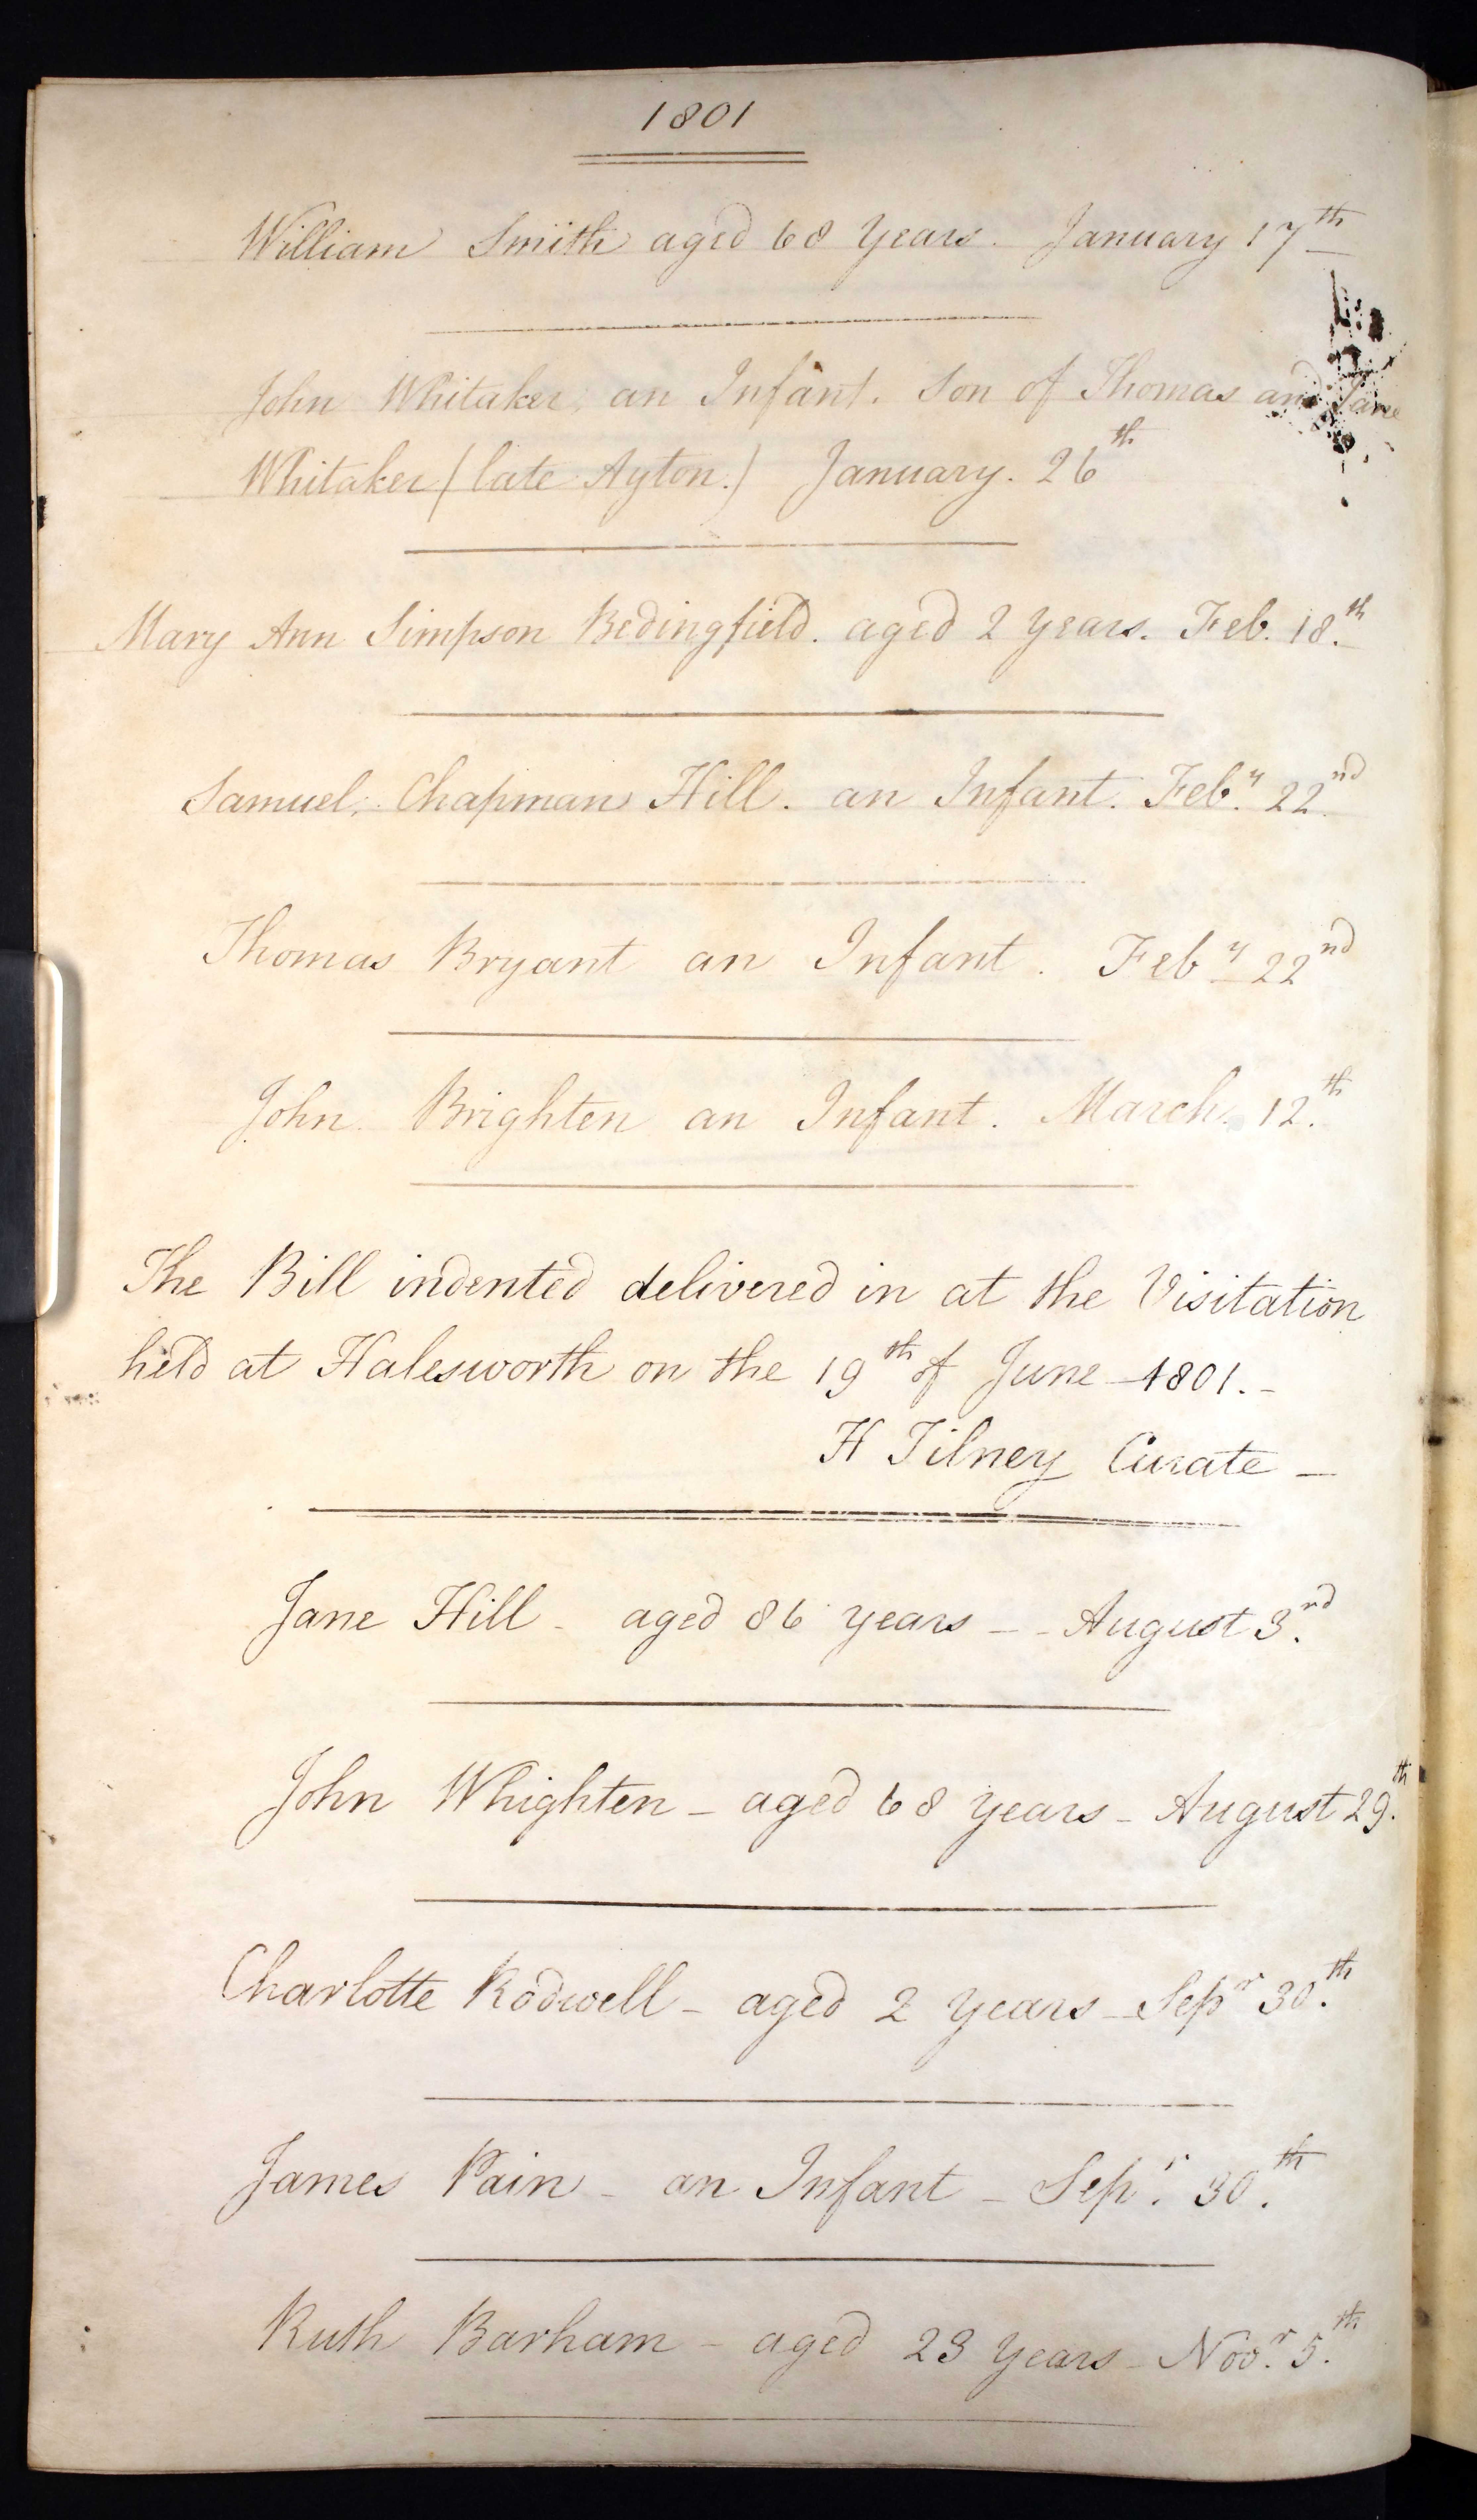 1801
William Smith aged 68 Years. January 17th
John Whitaker. an Infant. Son of Thomas and Jane
Whitaker (late Ayton.) January. 26th
Mary Ann Simpson Bedingfield. aged 2 Years. Feb. 18.th
Samuel. Chapman Hill. an Infant. Feb.y 22nd
Thomas Bryant an Infant. Feby 22nd
John. Brighten an Infant. March. 12.th
The Bill indented delivered in at the Visitation
held at Halesworth on the 19th of June 1801.-
H Tilney Curate -
Jane Hill - aged 86 years - - August 3.rd
John Whighten - aged 68 Years - August 29.th
Charlotte Rodwell - aged 2 Years - Sepr 30.th
James Pain - an Infant - Sep.r 30.th
Ruth Barham - aged 23 Years - Nov.r 5.th